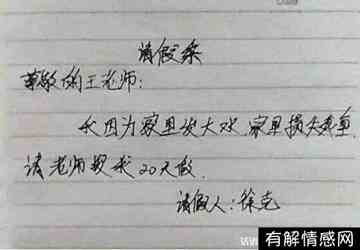 请假条
尊敬的王老师:
我因为家里发大水.家里损失惨重.
请老师批我20天假.
请假人:徐克
有解情感网